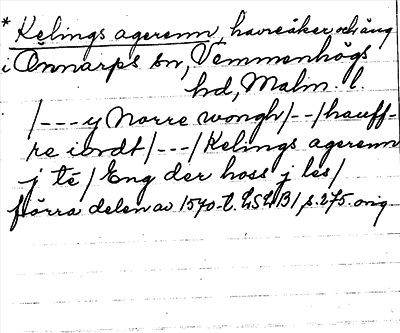 * Kelings agerenn, havreåker och äng
i Önnarps sn, Vemmenhögs
hd, Malm. l.
/---y Norre wongh/--/hauff-
re iordt/---/Kelings agerenn
j té/Eng der hoss j les/
förra delen av 1570-t. LSLB1 s.275. orig.